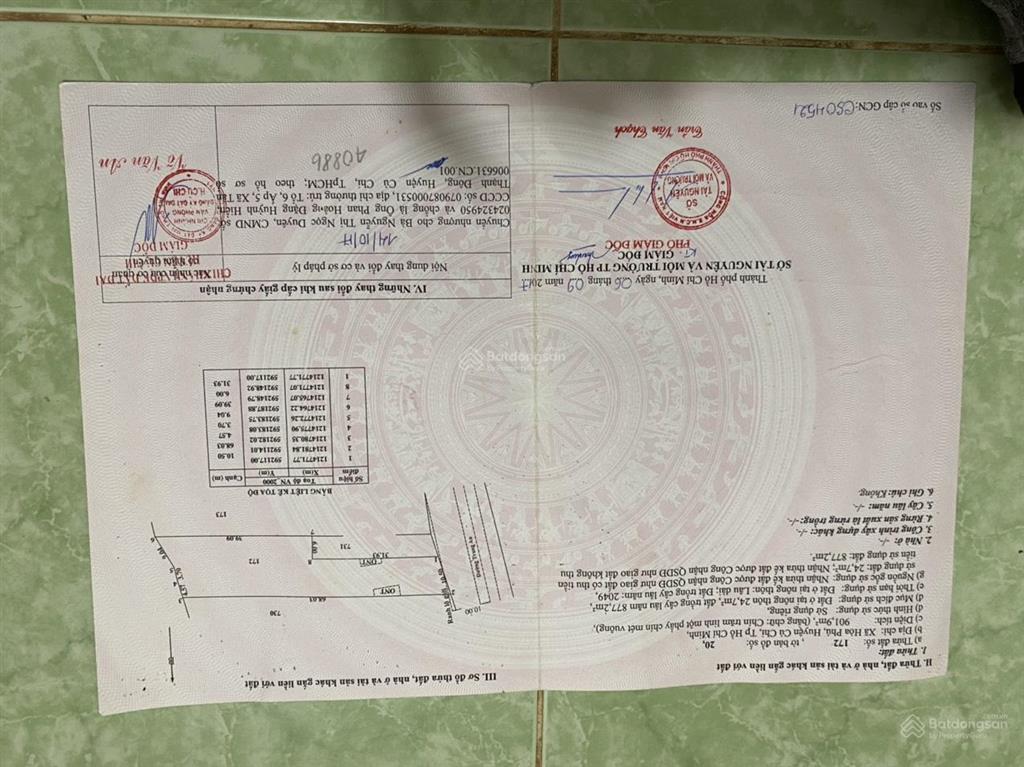 II. Thửa đất, nhà ở và tài sản khác gắn liền với đất
1. Thửa đất:
a) Thửa đất số: 172 , tờ bản đồ số: 20,
b) Địa chỉ: Xã Hòa Phú, Huyện Củ Chi, Tp Hồ Chí Minh,
c) Diện tích: 901,9m², (bằng chữ: Chín trăm lẻ một phẩy chín mét vuông),
d) Hình thức sử dụng: Sử dụng riêng,
đ) Mục đích sử dụng: Đất ở tại nông thôn 24,7m², đất trồng cây lâu năm 877,2m²,
e) Thời hạn sử dụng: Đất ở tại nông thôn: Lâu dài; Đất trồng cây lâu năm: 2049,
g) Nguồn gốc sử dụng: Nhận thừa kế đất được Công nhận QSDĐ như giao đất có thu tiền
sử dụng đất: 24,7m²; Nhận thừa kế đất được Công nhận QSDĐ như giao đất không thu
tiền sử dụng đất: 877,2m².
2. Nhà ở: -/-
3. Công trình xây dựng khác: -/-
4. Rừng sản xuất là rừng trồng: -/-
5. Cây lâu năm: -/-
6. Ghi chú: Không.
Thành phố Hồ Chí Minh, ngày 06 tháng 09 năm 2017
SỞ TÀI NGUYÊN VÀ MÔI TRƯỜNG TP HỒ CHÍ MINH
KT. GIÁM ĐỐC
PHÓ GIÁM ĐỐC
SỞ
TÀI NGUYÊN
VÀ MÔI TRƯỜNG
Trần Văn Thạch
Số vào sổ cấp GCN: CS04521
III. Sơ đồ thửa đất, nhà ở và tài sản khác gắn liền với đất
730
68.03
ONT
10.00
4.57
3.70
172
9.04
ONT
31.93
731
6.00
39.09
173
BẢNG LIỆT KÊ TỌA ĐỘ
Số hiệu điểm Toạ độ VN 2000 Cạnh (m)
X(m) Y(m)
1 1214771.77 592117.00
10.50
2 1214781.84 592114.01
68.03
3 1214780.35 592182.02
4.57
4 1214775.90 592183.08
3.70
5 1214772.26 592183.75
9.04
6 1214764.22 592187.88
39.09
7 1214765.07 592148.79
6.00
8 1214771.07 592148.92
31.93
1 1214771.77 592117.00
IV. Những thay đổi sau khi cấp giấy chứng nhận
Nội dung thay đổi và cơ sở pháp lý
Xác nhận của cơ quan
có thẩm quyền
14/10/17
Chuyển nhượng cho Bà Nguyễn Thị Ngọc Duyên, CMND số
024324950 và chồng là Ông Phan Hoàng Đăng Huỳnh Hiển,
CCCD số: 079087000531, địa chỉ thường trú: Tổ 6, Ấp 5, Xã Tân
Thạnh Đông, Huyện Củ Chi, TpHCM; theo hồ sơ số
006631.CN.001
40886
GIÁM ĐỐC
VĂN PHÒNG
ĐĂNG KÝ ĐẤT ĐAI
H.CỦ CHI
Võ Văn An
Batdongsan
Batdongsan.com.vn
by PropertyGuru